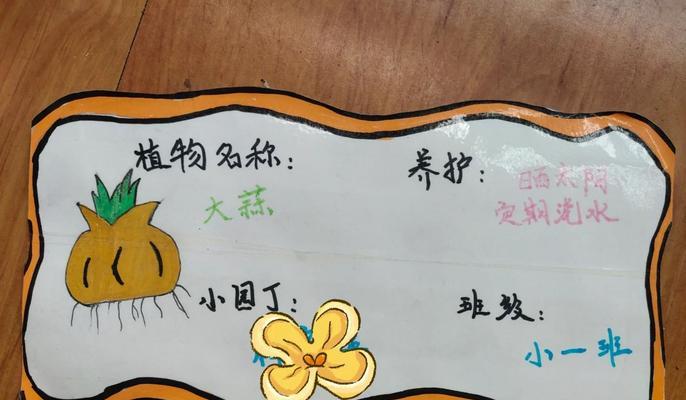 植物名称：
大蒜
养护：
晒太阳
定期浇水
小园丁：
班级：
小一班